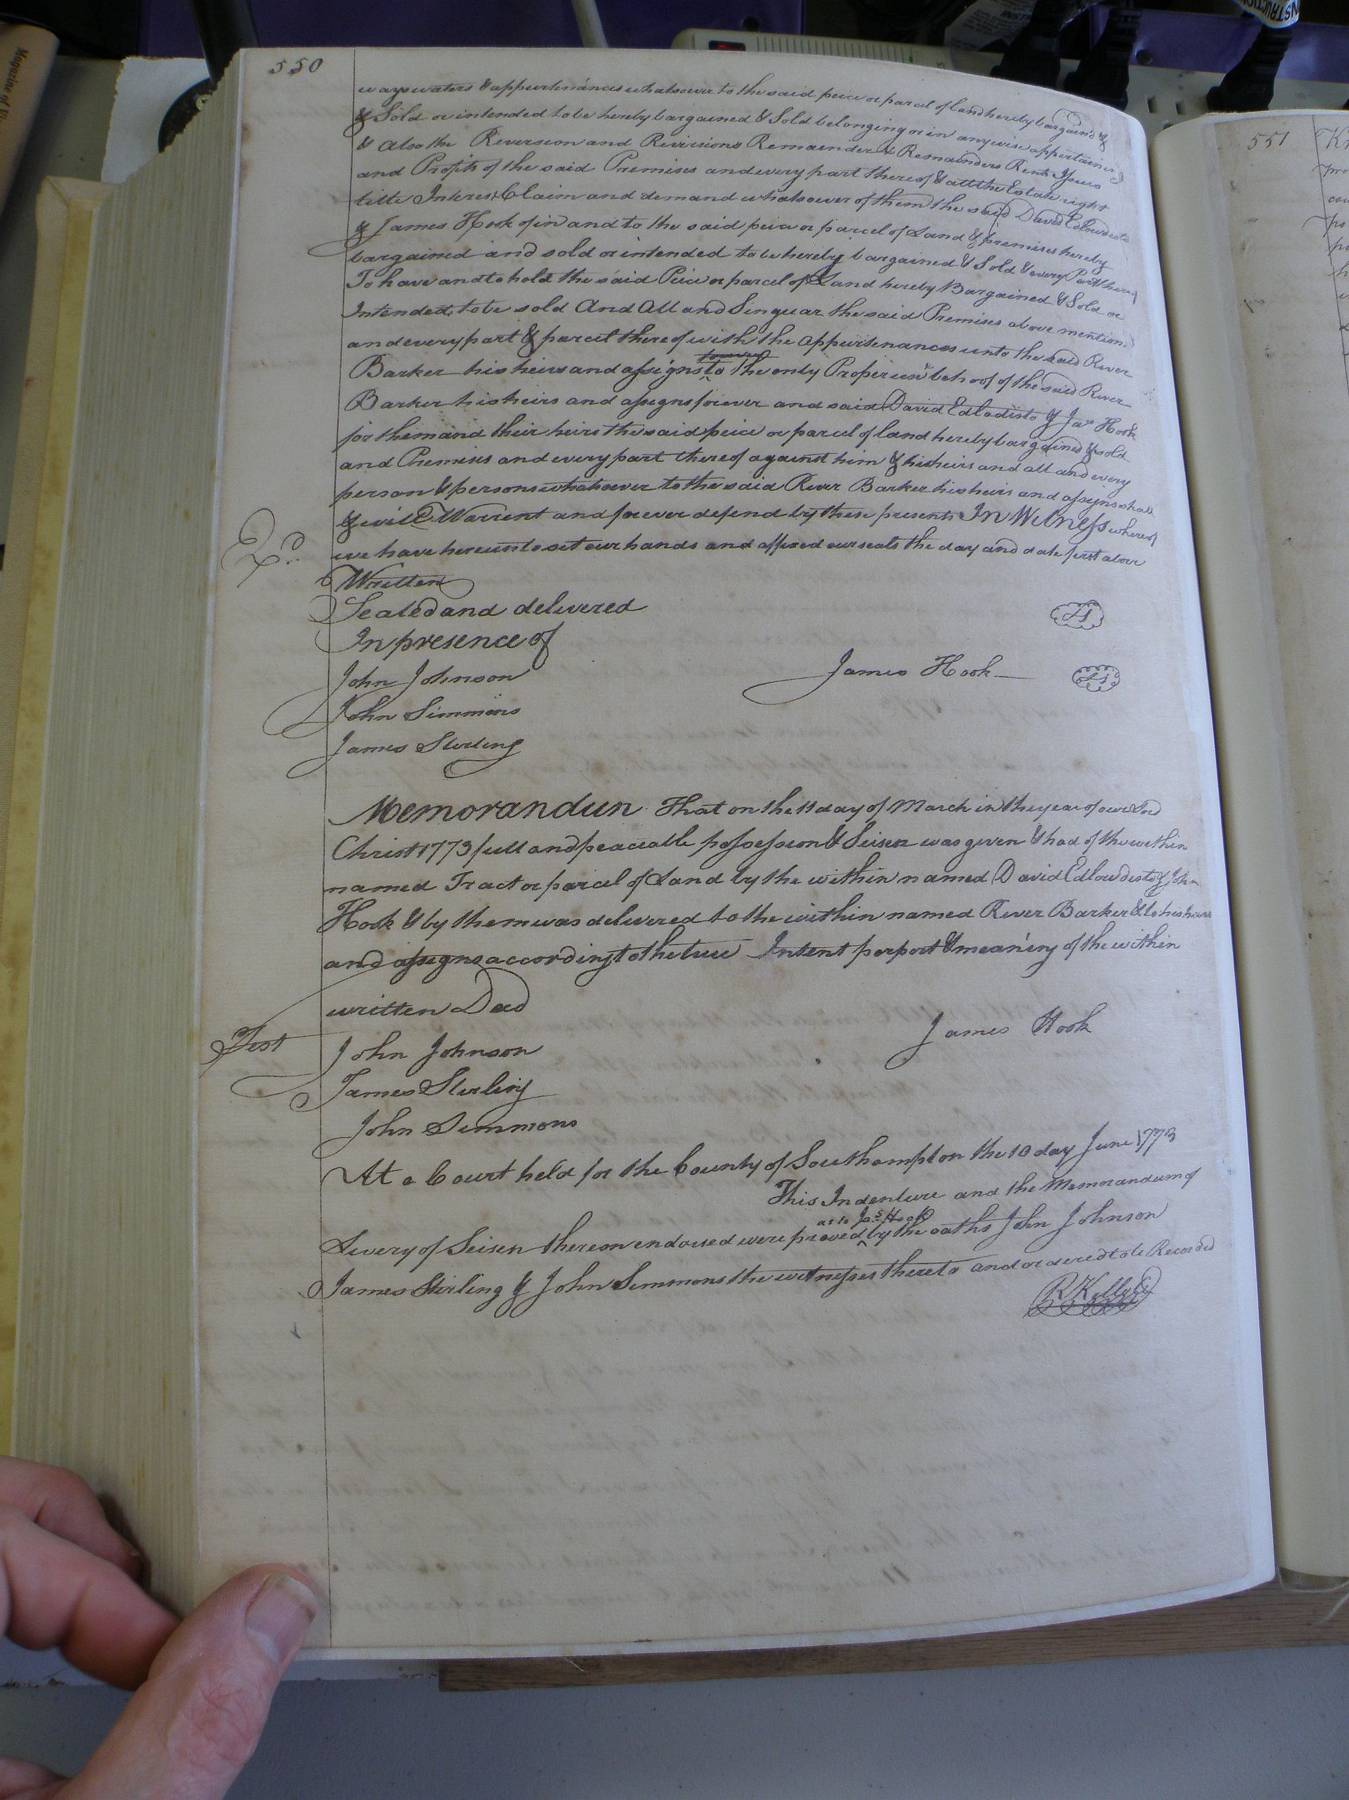 550
ways waters & appurtenances whatsoever to the said peice or parcel of land hereby bargained &
& Sold or intended to be hereby bargained & Sold belonging or in anywise appertaining
& also the Reversion and Reversions Remainder & Remainders Rents Issues
and Profits of the said Premises and every part thereof & all the Estate right
title Interest Claim and demand whatsoever of them the said David Edlowdisto
& James Hook of in and to the said peice or parcel of Land & premises hereby
bargained and sold or intended to be hereby bargained & Sold & every Part thereof
To have and to hold the said Peice or parcel of Land hereby Bargained & Sold or
Intended to be sold And All and Singuar the said Premises above mentiond
and every part & parcel thereof with the appurtenances unto the said River
forever
Barker his heirs and assigns to the only Proper use & behoof of the said River
Barker his heirs and assigns forever and said David Edlodisto & Jas Hook
for them and their heirs the said peice or parcel of land hereby bargained & sold
and Premises and every part thereof against him & his heirs and all and every
person & persons whatsoever to the said River Barker his heirs and assigns shall
& will Warrent and forever defend by these presents In Witness whereof
we have hereunto set our hands and affixed our seals the day and date first above
Written
Sealed and delivered
In presence of
John Johnson
James Hook
John Simmons
James Sterling
Memorandun That on the 11 day of March in the year of our Lord
Christ 1773 full and peaceable possession & Seisen was given & had of the within
named Tract or parcel of Land by the within named David Edlowdisto & John
Hook & by them was delivered to the within named River Barker & to his heirs
and assigns according to the true Intent porport & meaning of the within
written Deed
James Hook
Test
John Johnson
James Sterling
John Simmons
At a Court held for the County of Southampton the 10 day June 1773
This Indenture and the Memorandum of
as to Jas Hook
Livery of Seisen thereon endorsed were proved by the oaths John Johnson
James Sterling & John Simmons the witnesses thereto and ordered to be Recorded
R Kello
551